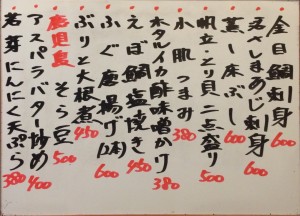 金目鯛刺身 600
活〆しまあじ刺身 600
蒸し床ぶし 600
帆立・とり貝二点盛り 500
小肌つまみ 380
ホタルイカ酢味噌かけ 380
えぼ鯛塩焼き 450
ふぐ唐揚げ(2本) 600
ぶりと大根煮 450
鹿児島 そら豆 500
アスパラバター炒め 400
若芽にんにく天ぷら 380